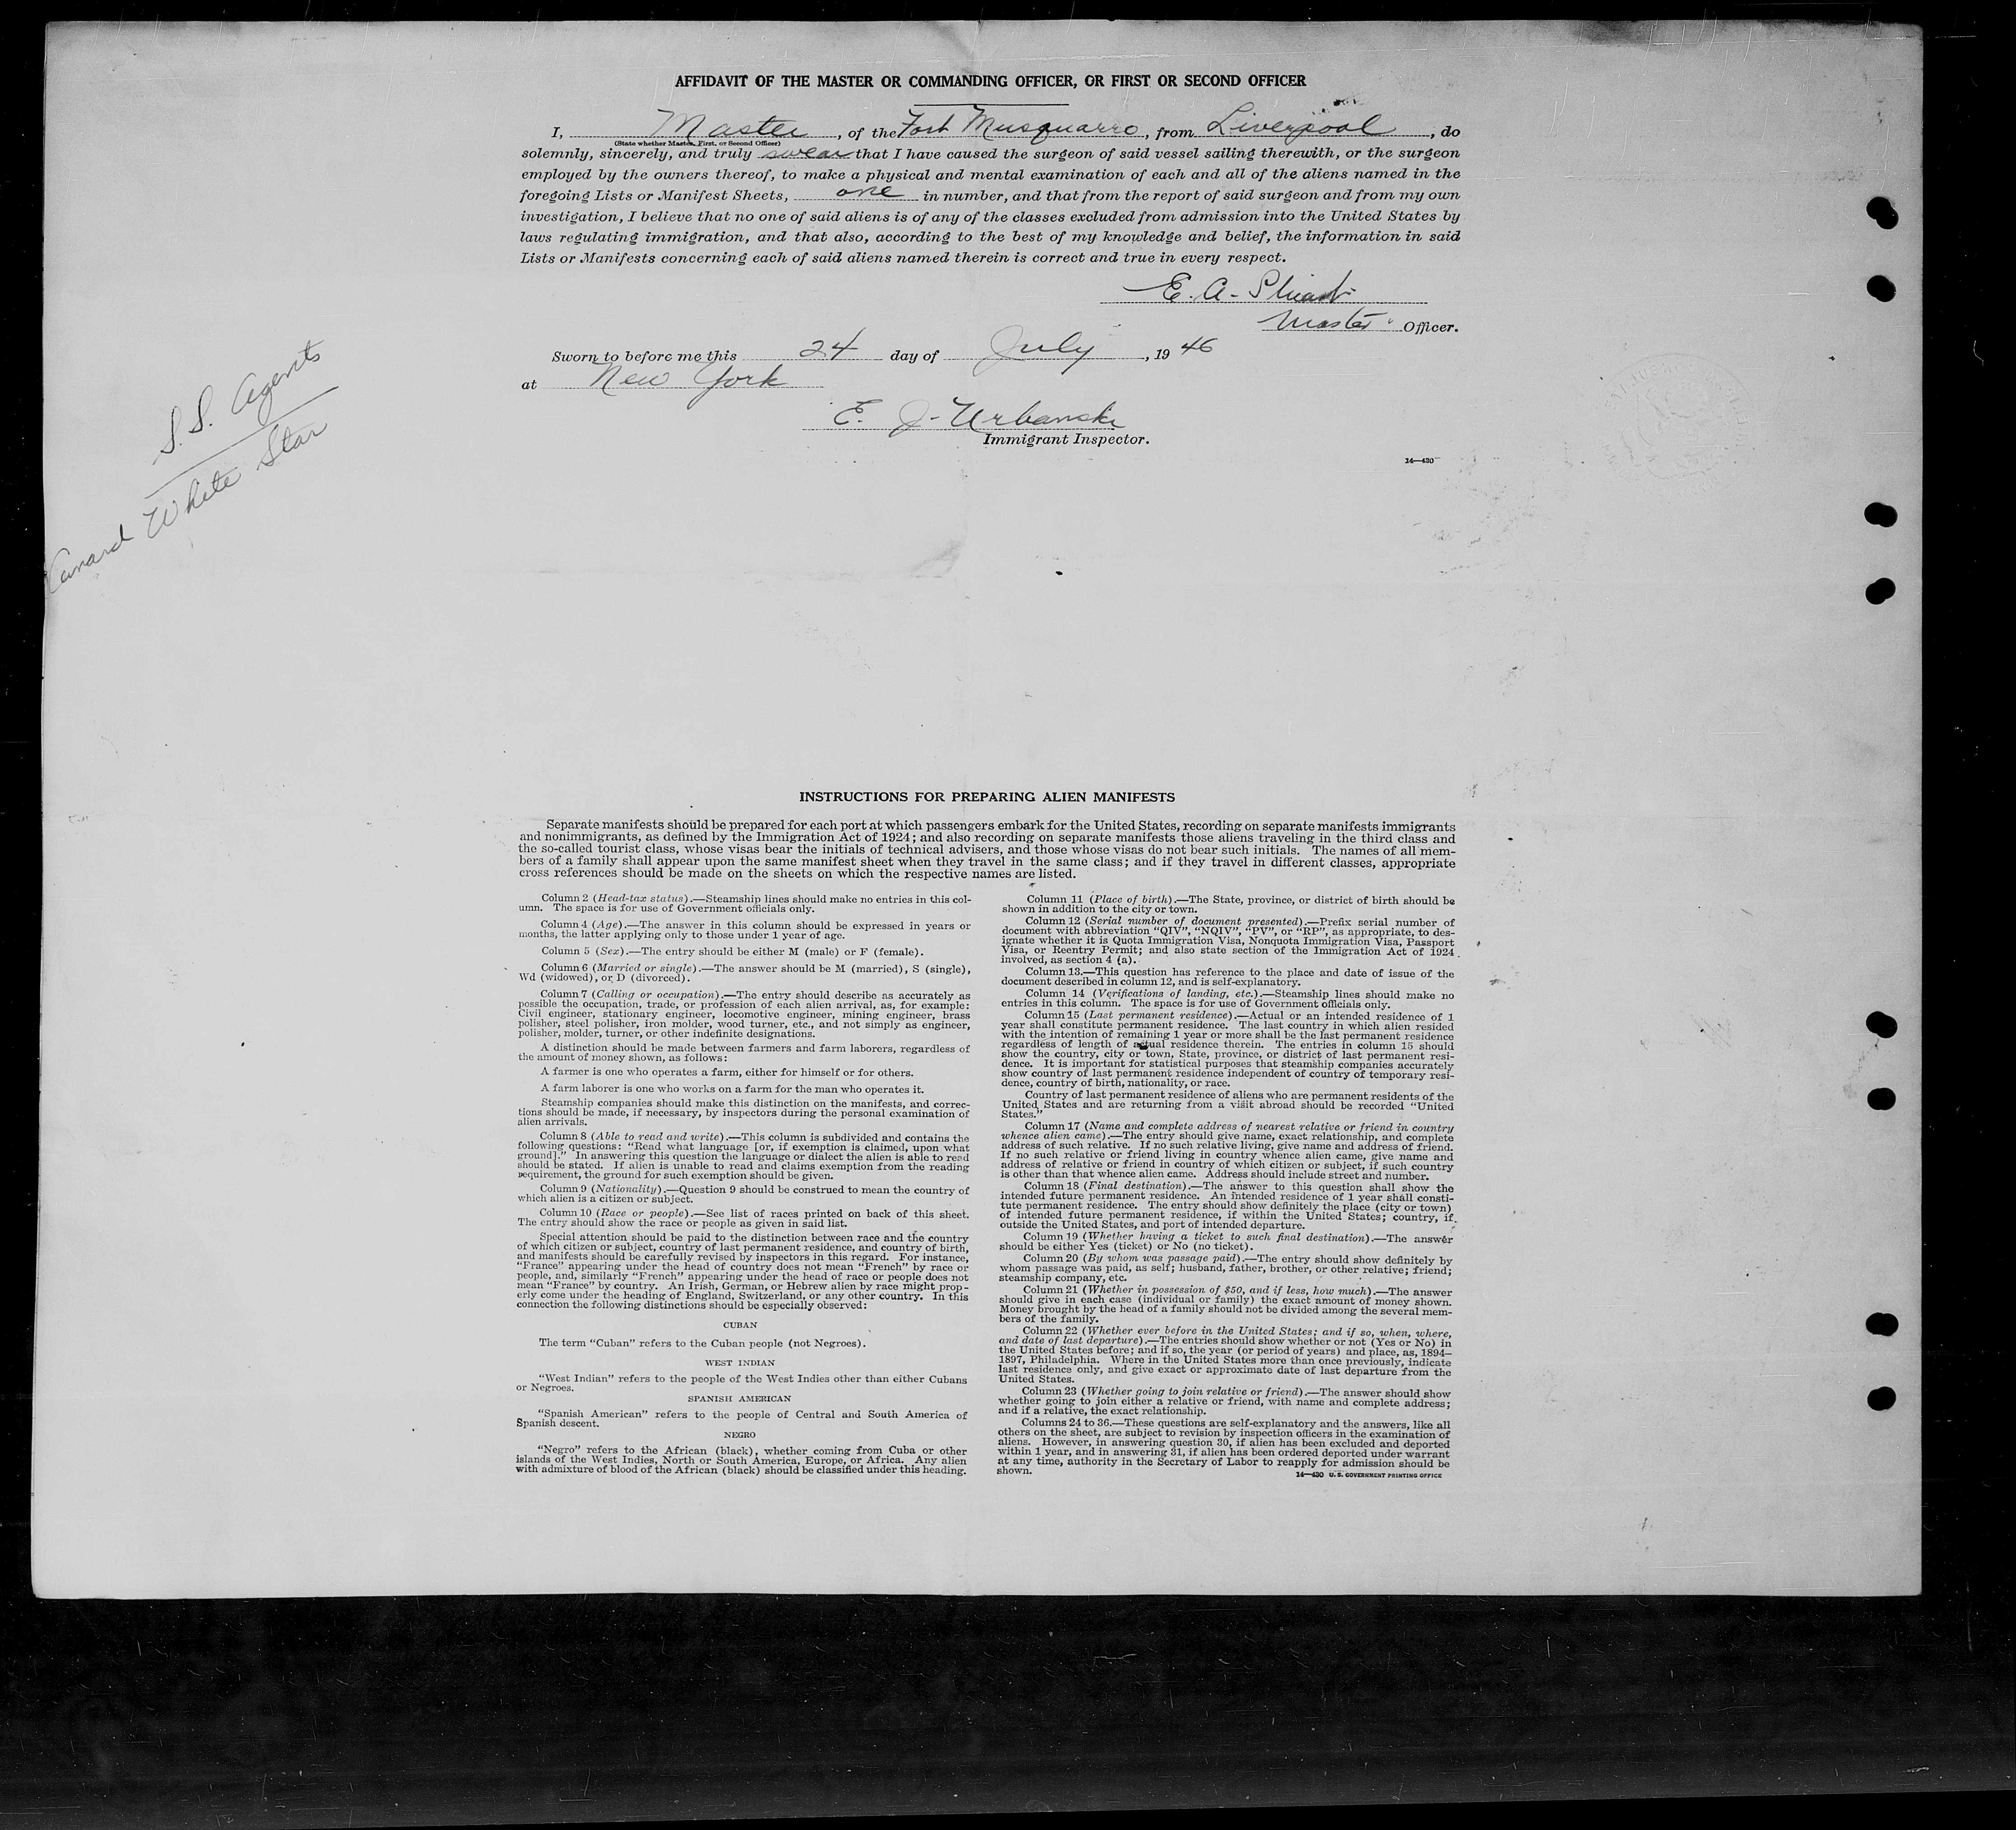 AFFIDAVIT OF THE MASTER OR COMMANDING OFFICER, OR FIRST OR SECOND OFFICER
I, Master, of the Fort Musquarro, from Liverpool, do
(State whether Master, First, or Second Officer)
solemnly, sincerely, and truly swear that I have caused the surgeon of said vessel sailing therewith, or the surgeon
employed by the owners thereof, to make a physical and mental examination of each and all of the aliens named in the
foregoing Lists or Manifest Sheets, one in number, and that from the report of said surgeon and from my own
investigation, I believe that no one of said aliens is of any of the classes excluded from admission into the United States by
laws regulating immigration, and that also, according to the best of my knowledge and belief, the information in said
Lists or Manifests concerning each of said aliens named therein is correct and true in every respect.
E. A.
Master Officer.
Sworn to before me this 24 day of July, 19 46
at New York
E. J. Urbanski
Immigrant Inspector.
14—430
S.S. Agents
Cunard White Star
INSTRUCTIONS FOR PREPARING ALIEN MANIFESTS
Separate manifests should be prepared for each port at which passengers embark for the United States, recording on separate manifests immigrants
and nonimmigrants, as defined by the Immigration Act of 1924; and also recording on separate manifests those aliens traveling in the third class and
the so-called tourist class, whose visas bear the initials of technical advisers, and those whose visas do not bear such initials. The names of all mem-
bers of a family shall appear upon the same manifest sheet when they travel in the same class; and if they travel in different classes, appropriate
cross references should be made on the sheets on which the respective names are listed.
Column 2 (Head-tax status).—Steamship lines should make no entries in this col-
umn. The space is for use of Government officials only.
Column 4 (Age).—The answer in this column should be expressed in years or
months, the latter applying only to those under 1 year of age.
Column 5 (Sex).—The entry should be either M (male) or F (female).
Column 6 (Married or single).—The answer should be M (married), S (single),
Wd (widowed), or D (divorced).
Column 7 (Calling or occupation).—The entry should describe as accurately as
possible the occupation, trade, or profession of each alien arrival, as, for example:
Civil engineer, stationary engineer, locomotive engineer, mining engineer, brass
polisher, steel polisher, iron molder, wood turner, etc., and not simply as engineer,
polisher, molder, turner, or other indefinite designations.
A distinction should be made between farmers and farm laborers, regardless of
the amount of money shown, as follows:
A farmer is one who operates a farm, either for himself or for others.
A farm laborer is one who works on a farm for the man who operates it.
Steamship companies should make this distinction on the manifests, and correc-
tions should be made, if necessary, by inspectors during the personal examination of
alien arrivals.
Column 8 (Able to read and write).—This column is subdivided and contains the
following questions: "Read what language [or, if exemption is claimed, upon what
ground]." In answering this question the language or dialect the alien is able to read
should be stated. If alien is unable to read and claims exemption from the reading
requirement, the ground for such exemption should be given.
Column 9 (Nationality).—Question 9 should be construed to mean the country of
which alien is a citizen or subject.
Column 10 (Race or people).—See list of races printed on back of this sheet.
The entry should show the race or people as given in said list.
Special attention should be paid to the distinction between race and the country
of which citizen or subject, country of last permanent residence, and country of birth,
and manifests should be carefully revised by inspectors in this regard. For instance,
"France" appearing under the head of country does not mean "French" by race or
people, and, similarly "French" appearing under the head of race or people does not
mean "France" by country. An Irish, German, or Hebrew alien by race might prop-
erly come under the heading of England, Switzerland, or any other country. In this
connection the following distinctions should be especially observed:
CUBAN
The term "Cuban" refers to the Cuban people (not Negroes).
WEST INDIAN
"West Indian" refers to the people of the West Indies other than either Cubans
or Negroes.
SPANISH AMERICAN
"Spanish American" refers to the people of Central and South America of
Spanish descent.
NEGRO
"Negro" refers to the African (black), whether coming from Cuba or other
islands of the West Indies, North or South America, Europe, or Africa. Any alien
with admixture of blood of the African (black) should be classified under this heading.
Column 11 (Place of birth).—The State, province, or district of birth should be
shown in addition to the city or town.
Column 12 (Serial number of document presented).—Prefix serial number of
document with abbreviation "QIV", "NQIV", "PV", or "RP", as appropriate, to des-
ignate whether it is Quota Immigration Visa, Nonquota Immigration Visa, Passport
Visa, or Reentry Permit; and also state section of the Immigration Act of 1924
involved, as section 4 (a).
Column 13.—This question has reference to the place and date of issue of the
document described in column 12, and is self-explanatory.
Column 14 (Verifications of landing, etc.).—Steamship lines should make no
entries in this column. The space is for use of Government officials only.
Column 15 (Last permanent residence).—Actual or an intended residence of 1
year shall constitute permanent residence. The last country in which alien resided
with the intention of remaining 1 year or more shall be the last permanent residence
regardless of length of actual residence therein. The entries in column 15 should
show the country, city or town, State, province, or district of last permanent resi-
dence. It is important for statistical purposes that steamship companies accurately
show country of last permanent residence independent of country of temporary resi-
dence, country of birth, nationality, or race.
Country of last permanent residence of aliens who are permanent residents of the
United States and are returning from a visit abroad should be recorded "United
States."
Column 17 (Name and complete address of nearest relative or friend in country
whence alien came).—The entry should give name, exact relationship, and complete
address of such relative. If no such relative living, give name and address of friend.
If no such relative or friend living in country whence alien came, give name and
address of relative or friend in country of which citizen or subject, if such country
is other than that whence alien came. Address should include street and number.
Column 18 (Final destination).—The answer to this question shall show the
intended future permanent residence. An intended residence of 1 year shall consti-
tute permanent residence. The entry should show definitely the place (city or town)
of intended future permanent residence, if within the United States; country, if
outside the United States, and port of intended departure.
Column 19 (Whether having a ticket to such final destination).—The answer
should be either Yes (ticket) or No (no ticket).
Column 20 (By whom was passage paid).—The entry should show definitely by
whom passage was paid, as self; husband, father, brother, or other relative; friend;
steamship company, etc.
Column 21 (Whether in possession of $50, and if less, how much).—The answer
should give in each case (individual or family) the exact amount of money shown.
Money brought by the head of a family should not be divided among the several mem-
bers of the family.
Column 22 (Whether ever before in the United States; and if so, when, where,
and date of last departure).—The entries should show whether or not (Yes or No) in
the United States before; and if so, the year (or period of years) and place, as, 1894–
1897, Philadelphia. Where in the United States more than once previously, indicate
last residence only, and give exact or approximate date of last departure from the
United States.
Column 23 (Whether going to join relative or friend).—The answer should show
whether going to join either a relative or friend, with name and complete address;
and if a relative, the exact relationship.
Columns 24 to 36.—These questions are self-explanatory and the answers, like all
others on the sheet, are subject to revision by inspection officers in the examination of
aliens. However, in answering question 30, if alien has been excluded and deported
within 1 year, and in answering 31, if alien has been ordered deported under warrant
at any time, authority in the Secretary of Labor to reapply for admission should be
shown.
14—430 U. S. GOVERNMENT PRINTING OFFICE